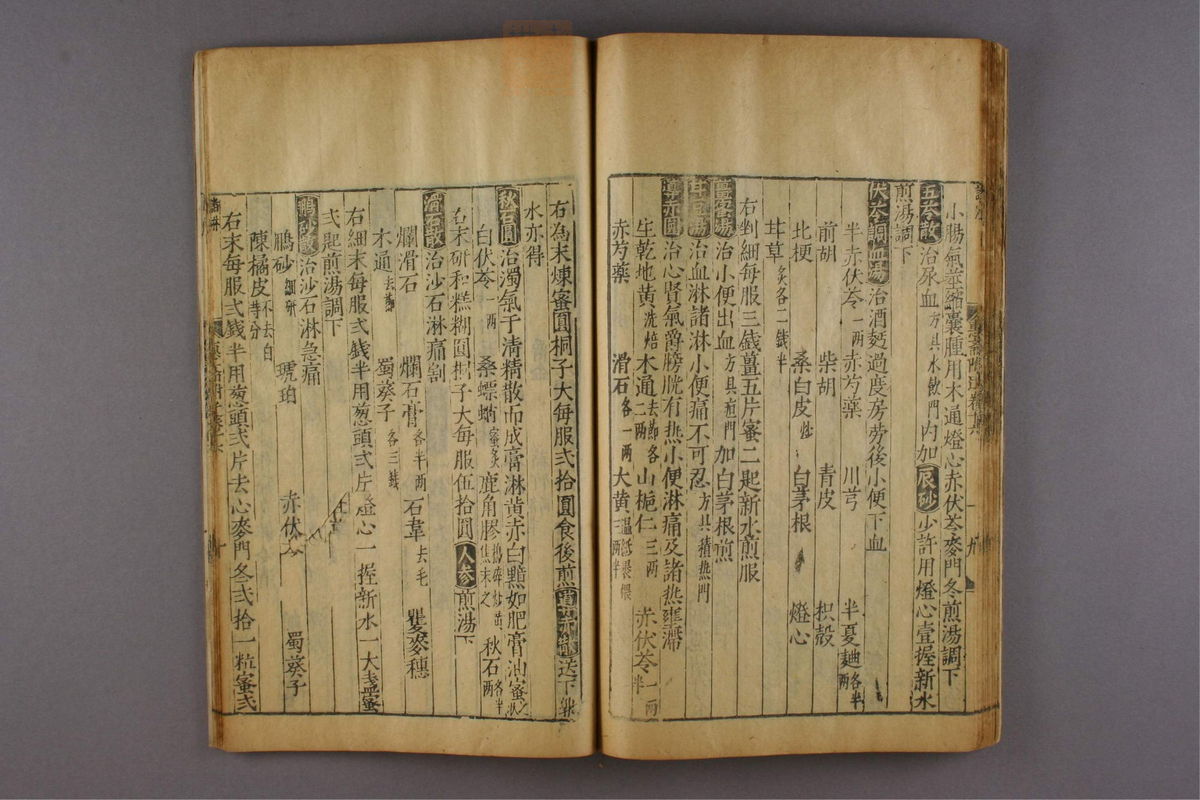 小腸氣并䋎囊腫用木通燈心赤伏苓麥門冬煎湯調下
五苓散治尿血方具水飲門內加辰砂少許用燈心壹握新水
煎湯調下
伏苓調血湯治酒麪過度房勞後小便下血
半赤伏苓一兩 赤芍藥 川芎 半夏麯各半兩
前胡 柴胡 青皮 枳殼
北梗 桑白皮炒 白茅根 燈心
甘草炙各二錢半
右剉細每服三錢薑五片蜜二匙新水煎服
治小便出血方具疸門加白茅根煎
治血淋諸淋小便痛不可忍方具積熱門
導赤圓治心腎氣鬱膀胱有热小便淋痛及諸热壅滯
生乾地黃洗焙 木通去節各二兩 山梔仁三兩 赤伏苓一兩半
赤芍藥 滑石各一兩 大黃溫紙裹煨三兩半
右為末煉蜜圓桐子大每服弐拾圓食後煎導赤散送下
水亦得
秋石圓治濁氣干清精散而成膏淋黃赤白黯如肥膏油蜜之狀
白伏苓一兩 桑螵蛸蜜炙 鹿角膠搗碎炒黃焦末之 秋石各半兩
右末研和糕糊圓桐子大每服伍拾圓人參煎湯下
滑石散治沙石淋痛割
爛滑石 爛石膏各半兩 石韋去毛 瞿麥穗
木通去節 蜀葵子各三錢
右細末每服弐錢半用葱頭弐片燈心一握新水一大盞蜜
弐匙煎湯調下
鵬砂散治沙石淋急痛
鵬砂細研 琥珀 赤伏 蜀葵子
陳橘皮不去白等分
右末每服弐錢半用葱頭弐片去心麥門冬弐拾一粒蜜弐